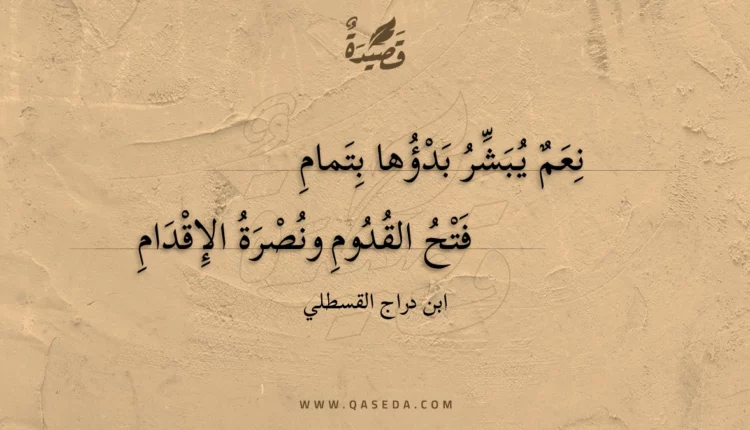 قَصِيدَةٌ
نِعَمٌ يُبَشِّرُ بَدْؤُها بِتَمامِ
فَتْحُ القُدُومِ ونُصْرَةُ الإِقْدَامِ
ابن دراج القسطلي
WWW.QASEDA.COM